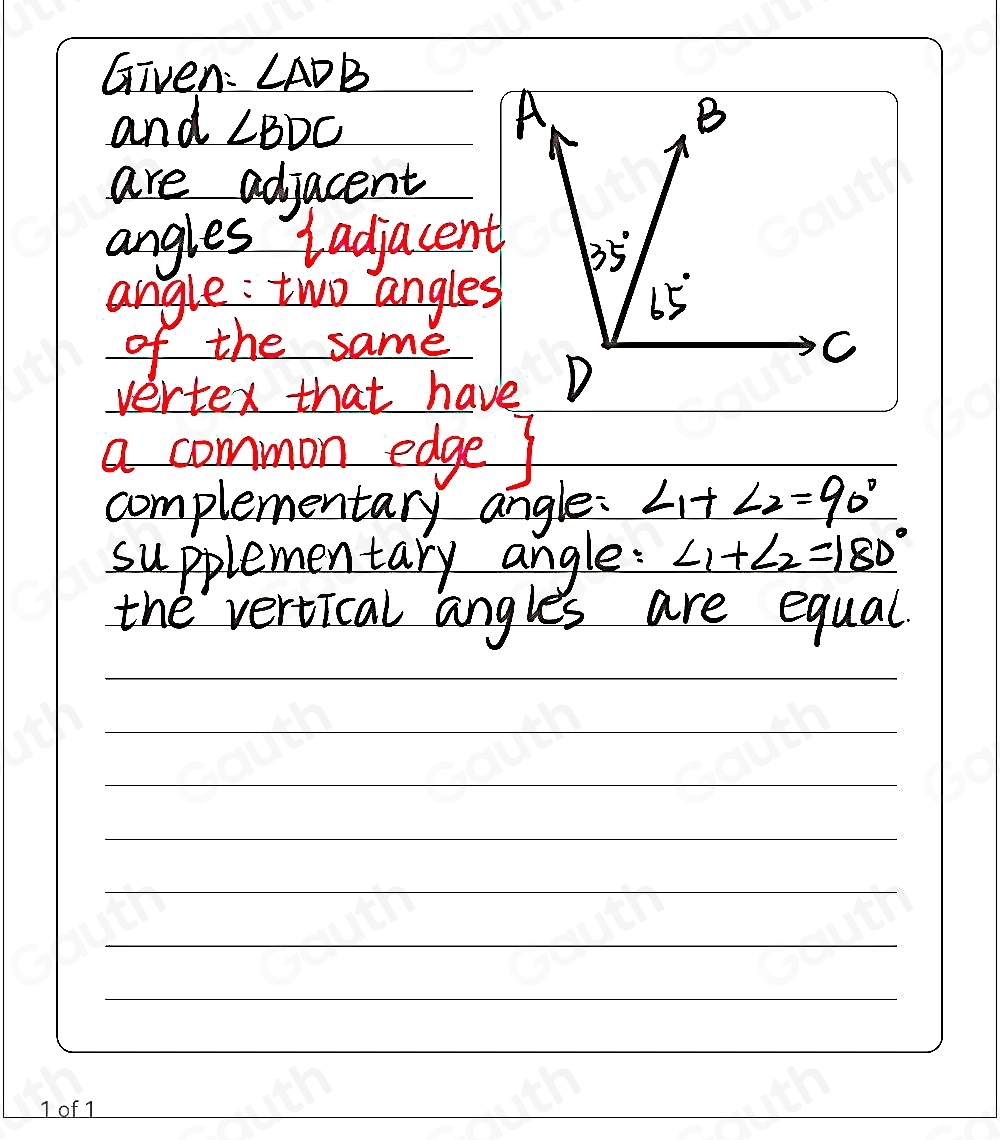 Given: ∠ADB
and ∠BDC
are adjacent
angles {adjacent
angle: two angles
of the same
vertex that have
a common edge}
complementary angle: ∠1+ ∠2=90°
supplementary angle: ∠1+∠2=180°
the vertical angles are equal.
A
B
35°
65°
C
D
1 of 1
Gauth